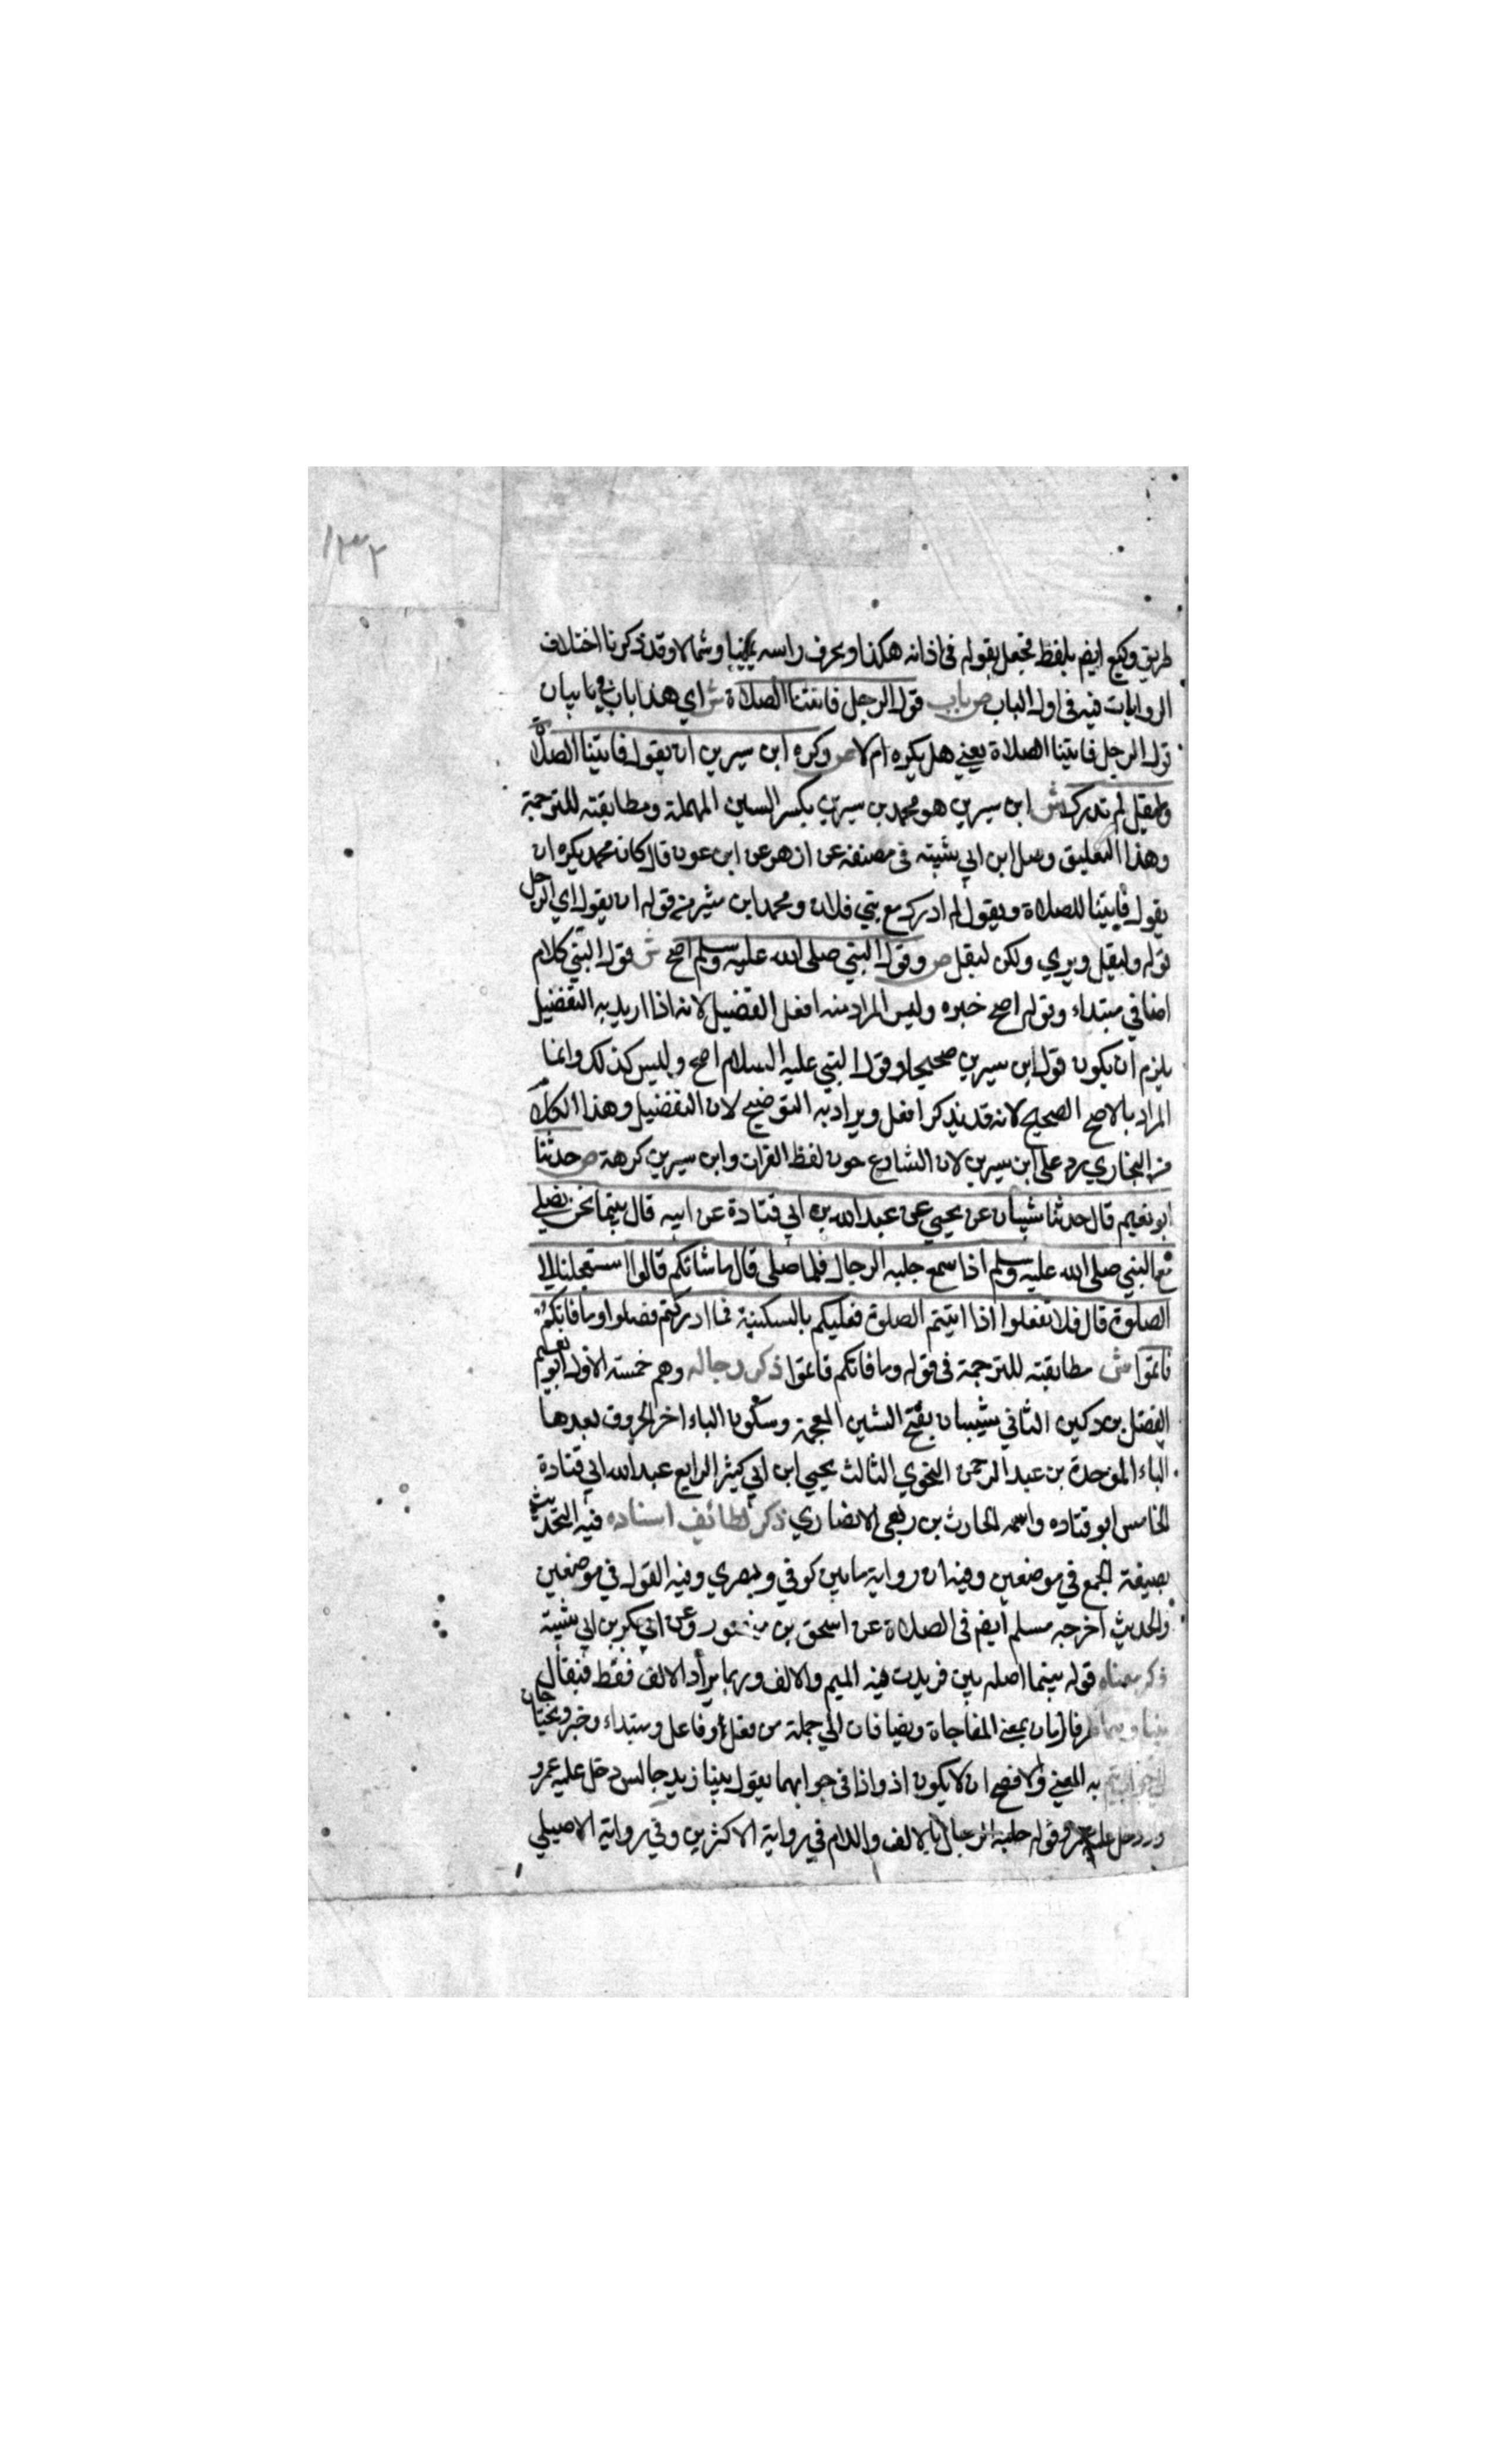 ١٣٢
طريق وكيع ايضم بلفظ فجعل يقول في اذانه هكذا ويحرف راسه يمينا وشمالا وقد ذكرنا اختلاف
الروايات فيه في اول الباب ص باب قول الرجل فاتتنا الصلاة ش اي هذا باب في بيان
قول الرجل فاتتنا الصلاة يعني هل يكره ام لا ص وكره ابن سيرين ان يقول فاتتنا الصلاة
وليقل لم ندرك ش ابن سيرين هو محمد بن سيرين بكسر السين المهملة ومطابقته للترجمة
وهذا التعليق وصل ابن ابي شيبة في مصنفه عن ازهر عن ابن عون قال كان محمد يكره ان
يقول فاتتنا الصلاة ويقول لم ادرك مع بني فلان ومحمد ابن قوله ان يقول اي الرجل
قوله وليقل ويروي ولكن ليقل ص وقول النبي صلى الله عليه وسلم اصح ش قول النبي كلام
اضافي مبتداء وقوله اصح خبره وليس المراد منه افعل التفضيل لانه اذا اريد به التفضيل
يلزم ان يكون قول ابن سيرين صحيحا وقول النبي عليه السلام اصح وليس كذلك وانما
المراد بالاصح الصحيح لانه قد يذكر افعل ويراد به التوضيح لان التفضيل وهذا الكلام
من البخاري رد على ابن سيرين لان الشارع جوز لفظ الفوات وابن سيرين كرهه ص حدثنا
ابو نعيم قال حدثنا شيبان عن يحيى عن عبد الله بن ابي قتادة عن ابيه قال بينما نحن نصلي
مع النبي صلى الله عليه وسلم اذا سمع جلبه الرجال فلما صلى قال ما شانكم قالوا استعجلنا الي
الصلوة قال فلا تفعلوا اذا اتيتم الصلوة فعليكم بالسكينة فما ادركتم فصلوا وما فاتكم
فاتموا ش مطابقته للترجمة في قوله وما فاتكم فاتموا ذكر رجاله وهم خمسة الاول ابو نعيم
الفضل بن دكين الثاني شيبان بفتح الشين المعجمة وسكون الياء اخر الحروف بعدها
الباء الموحدة بن عبد الرحمن النحوي الثالث يحيى ابن ابي كثير الرابع عبد الله ابي قتادة
الخامس ابو قتاده واسمه الحارث بن ربعي الانصاري ذكر لطائف اسناده فيه التحديث
بصيغة الجمع في موضعين وفيه ان رواية ما بين كوفي وبصري وفيه القول في موضعين
والحديث اخرجه مسلم ايضم في الصلاة عن اسحق بن منصور وعن ابي بكر بن ابي شيبة
ذكر معناه قوله بينما اصله بين فزيدت فيه الميم والالف وربما يزاد الالف فقط فيقال
بينا وهما ظرفا زمان بمعنى المفاجاة ويضافان الي جملة من فعل وفاعل ومبتداء وخبر ويحتاجان
الي جواب يتم به المعني والافصح ان لا يكون اذ واذا في جوابهما يقول بينا زيد جالس دخل عليه عمرو
دخل عليه عمرو قوله جلبة الرجال بالالف واللام في رواية الاكثرين وفي رواية الاصيلي